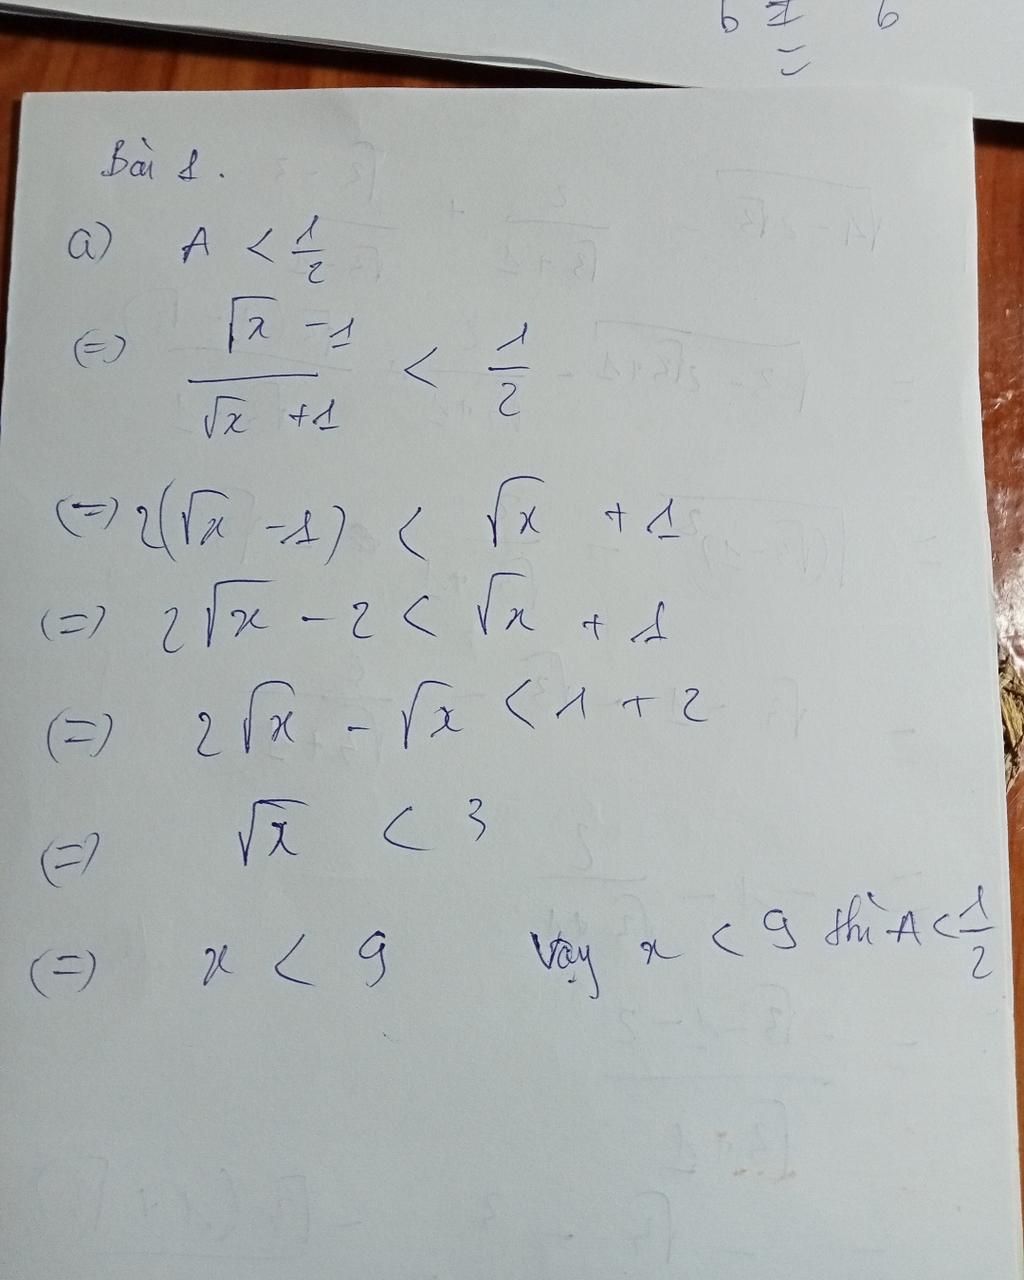 Bài 1.
a) A < 1/2
(=) (√x - 1)/(√x + 1) < 1/2
(=) 2(√x - 1) < √x + 1
(=) 2√x - 2 < √x + 1
(=) 2√x - √x < 1 + 2
(=) √x < 3
(=) x < 9 Vậy x < 9 thì A < 1/2